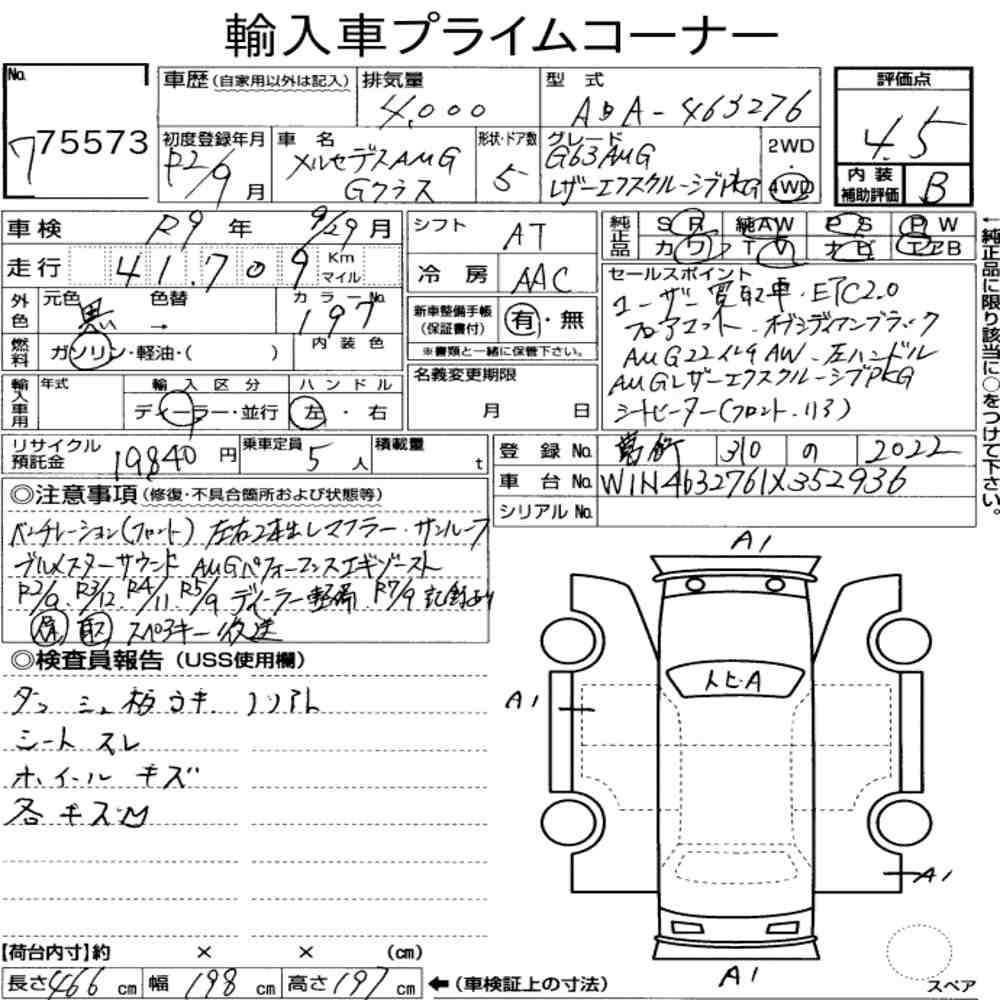 輸入車プライムコーナー
No. 7 75573
車歴(自家用以外は記入) 排気量 4,000 型式 ABA-463276
評価点 4.5
初度登録年月 R2/9月 車名 メルセデスAMG Gクラス 形状・ドア数 5 グレード G63AMG レザーエクスクルーシブPKG 2WD 4WD
内装補助評価 B
車検 R9年 9/29月 シフト AT
純正品 SR 純AW PS PW
カワ TV ナビ エアB
走行 41,709 Km マイル 冷房 AAC
外色 元色 黒 → 色替 カラーNo. 197 内装色
新車整備手帳(保証書付) 有・無
※書類と一緒に保管下さい。
燃料 ガソリン・軽油・( )
セールスポイント
ユーザー買取車・ETC2.0
フロアマット・オブシディアンブラック
AMG22インチAW・左ハンドル
AMGレザーエクスクルーシブPKG
シートヒーター(フロント・リヤ)
←純正品に限り該当に○をつけて下さい。
名義変更期限 月 日
輸入車用 年式 輸入区分 ディーラー・並行 ハンドル 左・右
リサイクル預託金 19840円 乗車定員 5人 積載量 t
登録No. 葛飾 310 の 2022
車台No. W1N4632761X352936
シリアルNo.
◎注意事項(修復・不具合箇所および状態等)
ベンチレーション(フロント) 左右2本出しマフラー・サンルーフ
ブルメスターサウンド AMGパフォーマンスエギゾースト
R2/9 R3/12 R4/11 R5/9 ディーラー整備 R7/9 記録あり
保 取 スペアキー後送
◎検査員報告(USS使用欄)
シート スレ
ホイール キズ
各 キズ凹
A1
A1
トビA
A1
A1
スペア
【荷台内寸】約 × × (cm)
長さ466cm 幅198cm 高さ197cm ←(車検証上の寸法)